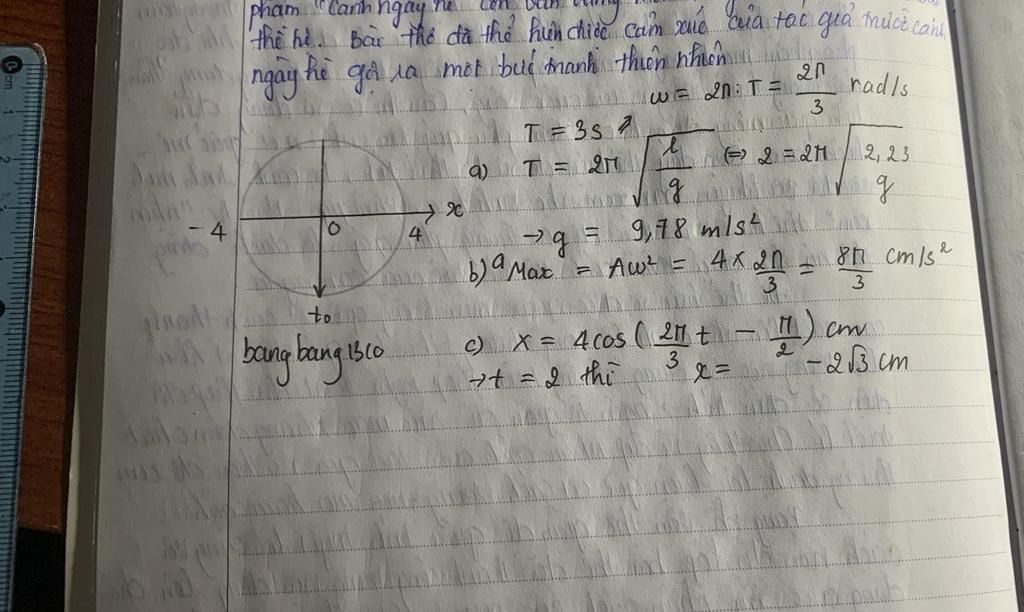 phẩm "Cảnh ngày hè
thế hệ. Bài thể đã thể hiện chiếc cảm xúc của tác giả trước cảnh
ngày hè gợi ra một bức tranh thiên nhiên
ω = 2π : T = 2π/3 rad/s
T = 3s
a) T = 2π √(l/g) ⇔ 2 = 2π √(2,23/g)
→ g = 9,78 m/s²
-4 0 4 x
b) a Max = Aω² = 4 × 2π/3 = 8π/3 cm/s²
to
c) x = 4cos(2π/3 t - π/2) cm
bangbang13co
→ t = 2 thì x = -2√3 cm